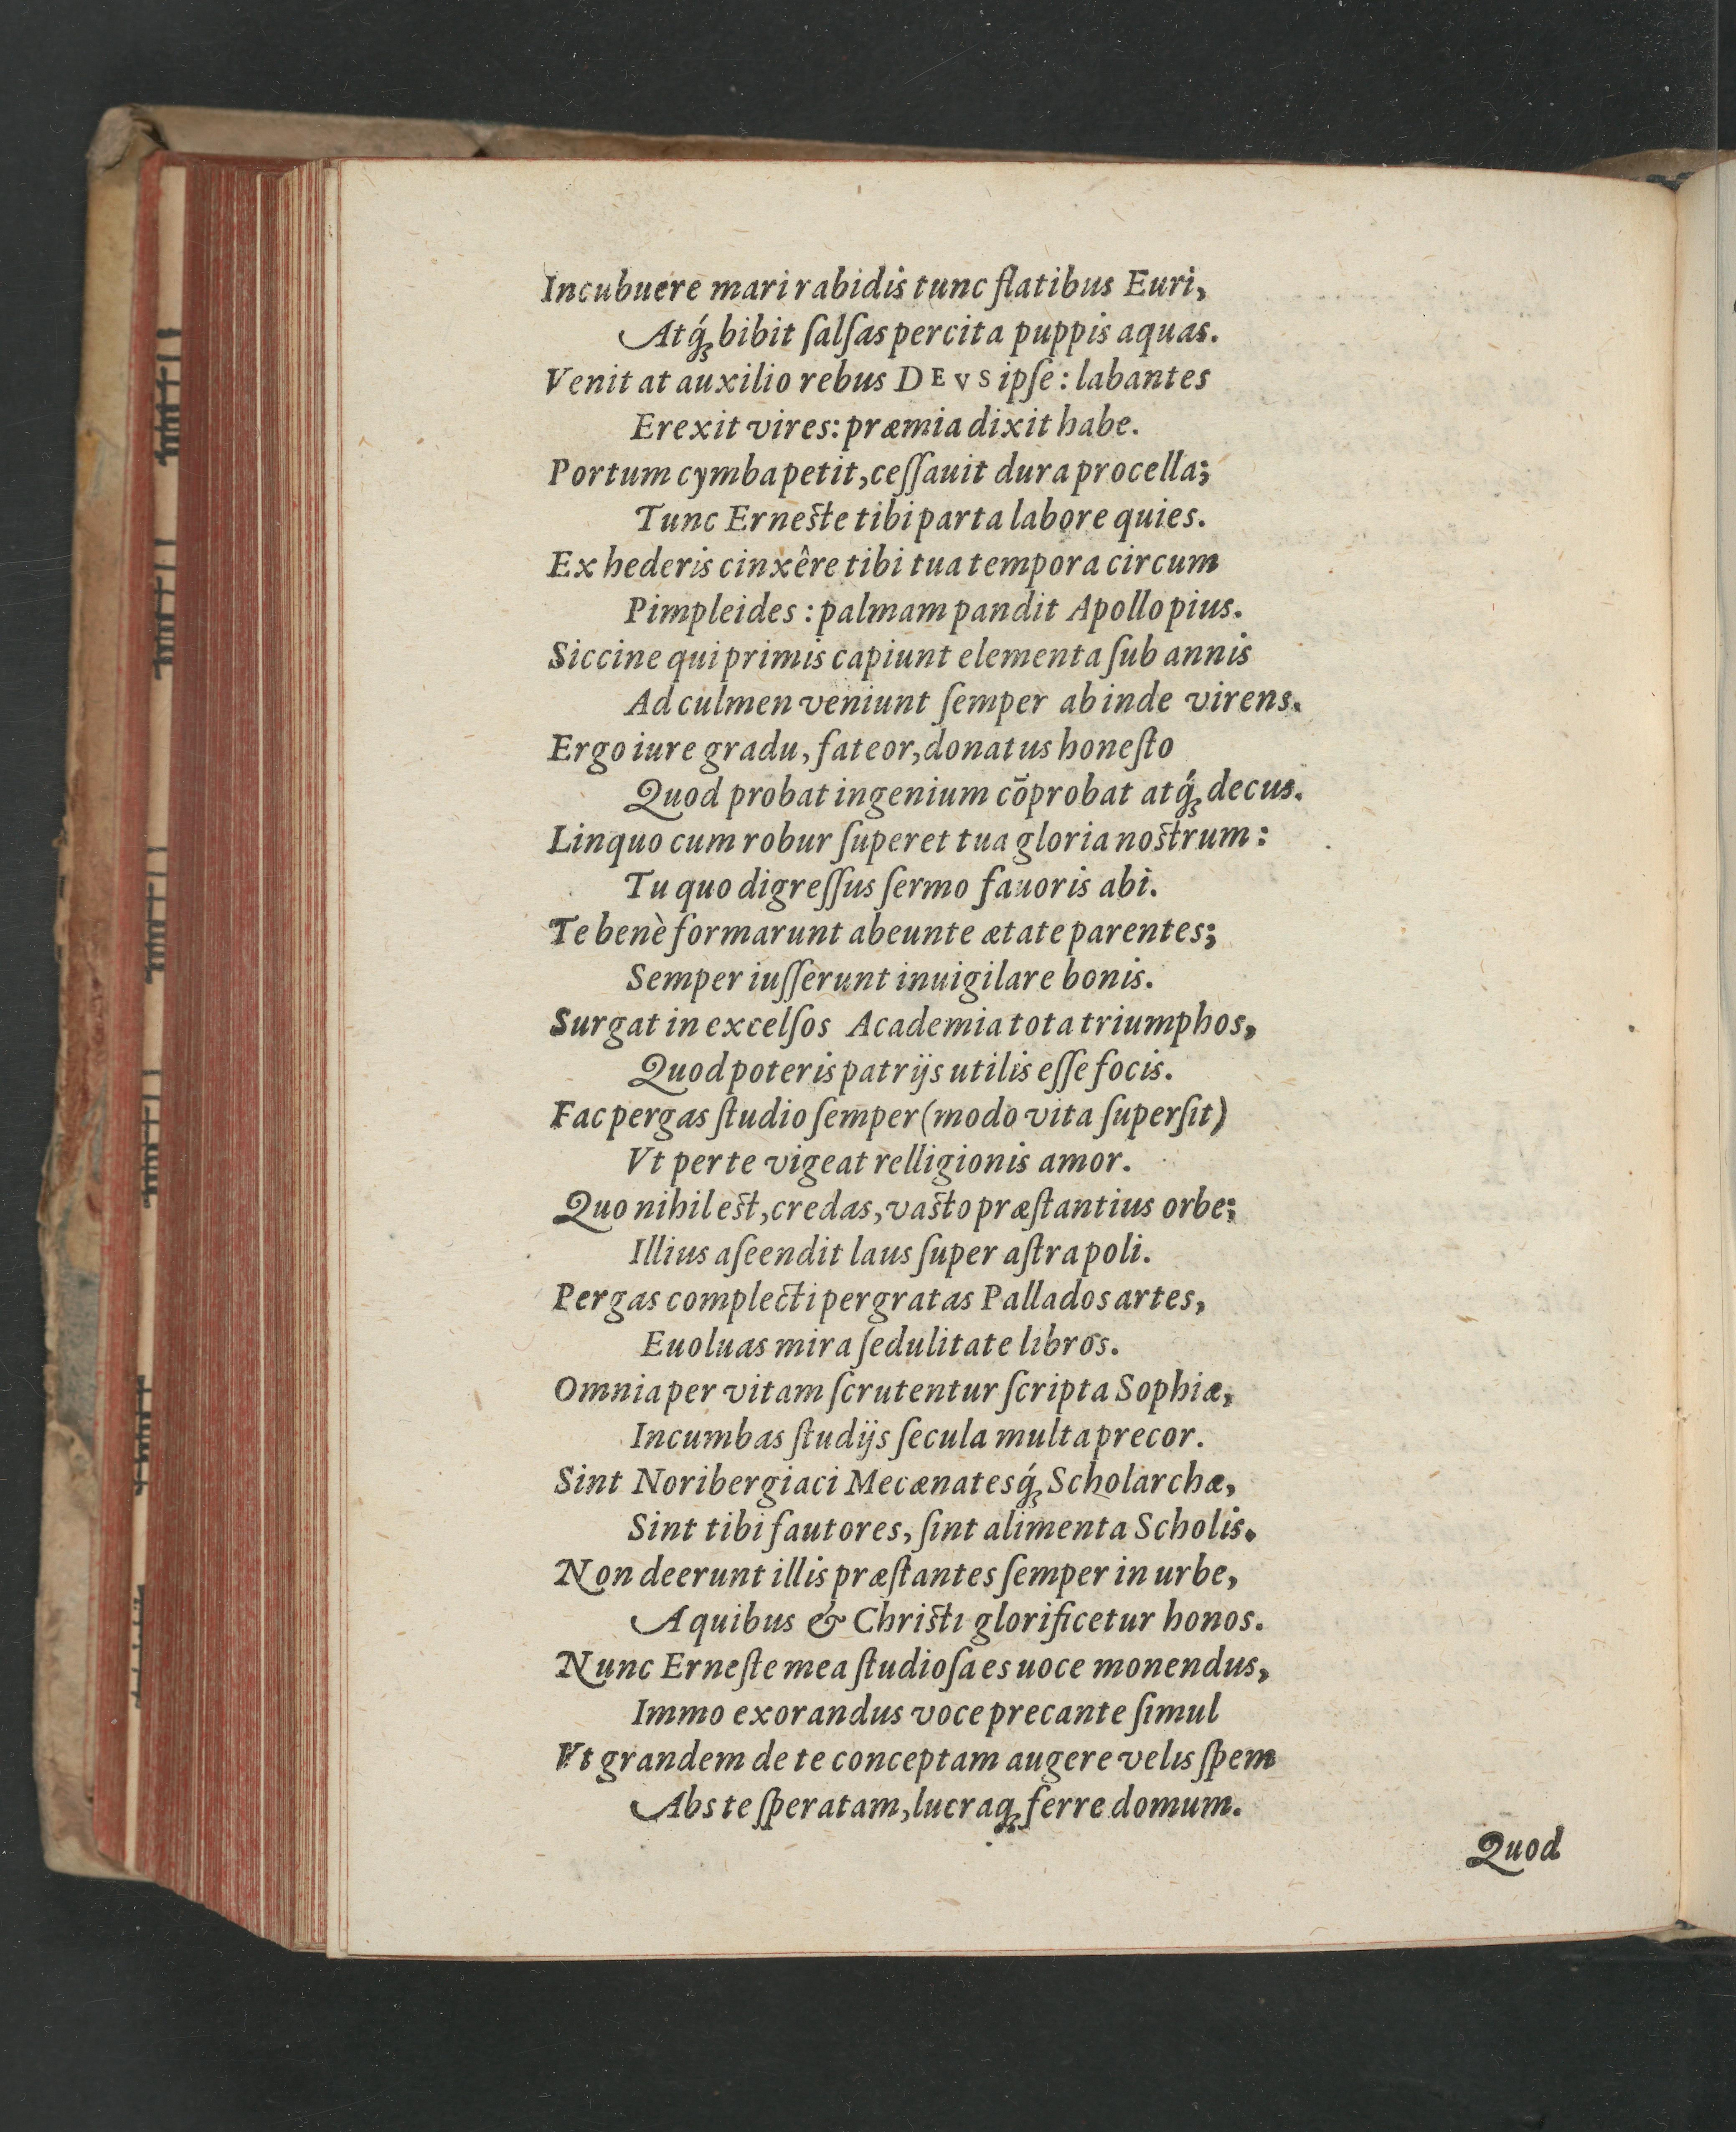 Incubuere mari rabidis tunc flatibus Euri,
Atq́ꝫ bibit ſalſas percita puppis aquas.
Venit at auxilio rebus DEVS ipſe: labantes
Erexit vires: præmia dixit habe.
Portum cymba petit, ceſſauit dura procella;
Tunc Erneste tibi parta labore quies.
Ex hederis cinxêre tibi tua tempora circum
Pimpleides: palmam pandit Apollo pius.
Siccine qui primis capiunt elementa ſub annis
Ad culmen veniunt ſemper ab inde virens.
Ergo iure gradu, fateor, donatus honeſto
Quod probat ingenium cōprobat atq́ꝫ decus.
Linquo cum robur ſuperet tua gloria nostrum:
Tu quo digreſſus ſermo fauoris abi.
Te benè formarunt abeunte ætate parentes;
Semper iuſſerunt inuigilare bonis.
Surgat in excelſos Academia tota triumphos,
Quod poteris patrijs utilis eſſe focis.
Fac pergas ſtudio ſemper (modo vita ſuperſit)
Vt per te vigeat relligionis amor.
Quo nihil est, credas, vasto præſtantius orbe;
Illius aſeendit laus ſuper aſtra poli.
Pergas complecti pergratas Pallados artes,
Euoluas mira ſedulitate libros.
Omnia per vitam ſcrutentur ſcripta Sophiæ,
Incumbas ſtudijs ſecula multa precor.
Sint Noribergiaci Mecænatesq́ꝫ Scholarchæ,
Sint tibi fautores, ſint alimenta Scholis.
Non deerunt illis præſtantes ſemper in urbe,
A quibus & Christi glorificetur honos.
Nunc Erneſte mea ſtudioſa es uoce monendus,
Immo exorandus voce precante ſimul
Vt grandem de te conceptam augere velis ſpem
Abs te ſperatam, lucraqꝫ ferre domum.
Quod